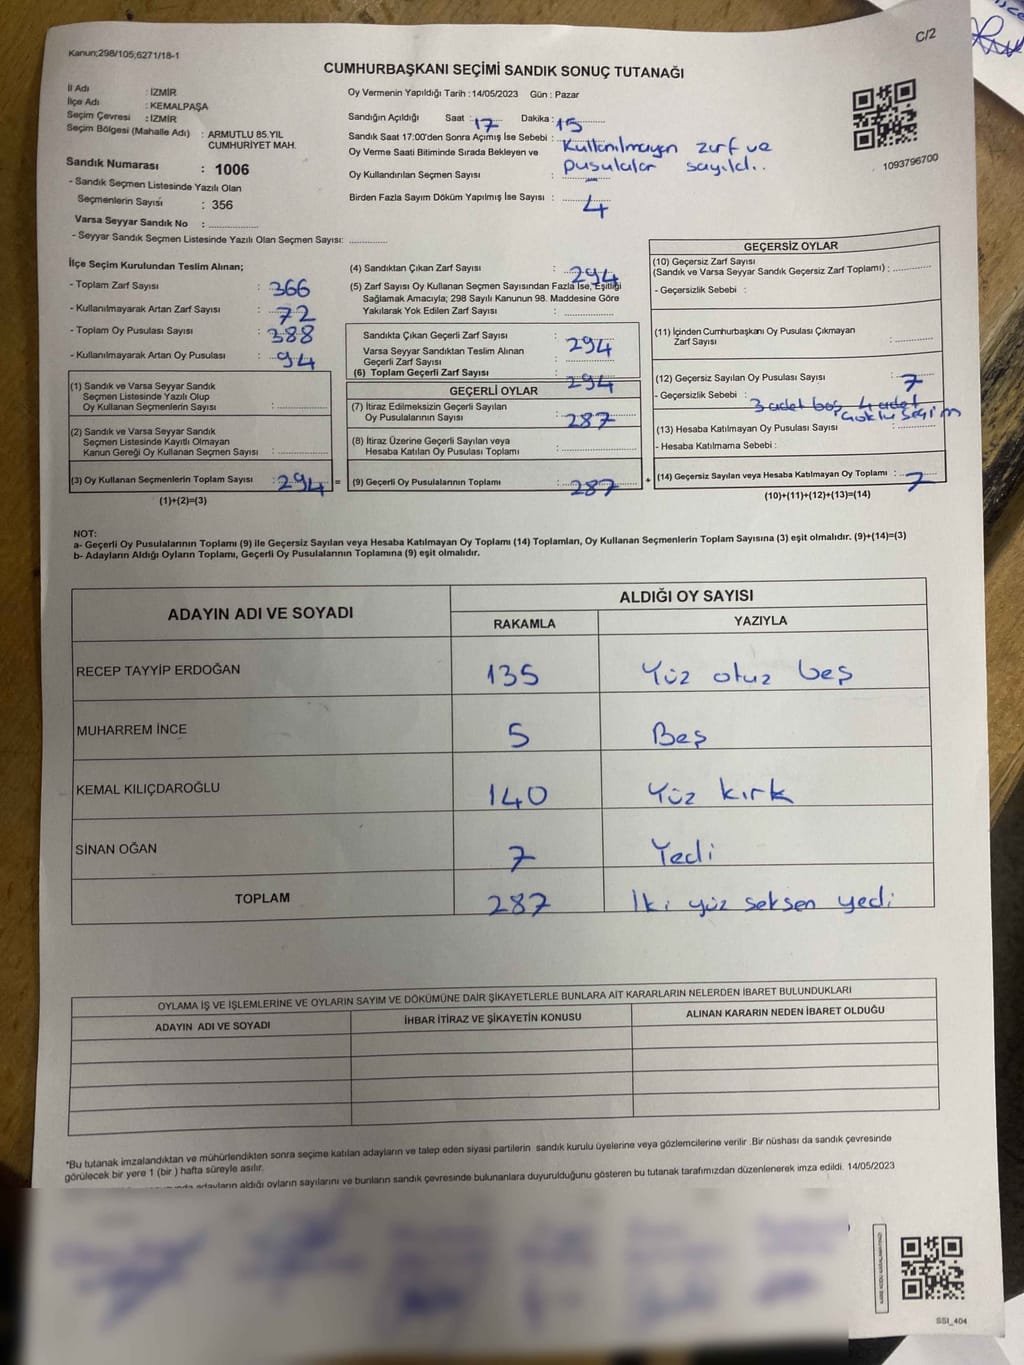 C/2
Kanun;298/105;6271/18-1
CUMHURBAŞKANI SEÇİMİ SANDIK SONUÇ TUTANAĞI
İl Adı : İZMİR
İlçe Adı : KEMALPAŞA
Seçim Çevresi : İZMİR
Seçim Bölgesi (Mahalle Adı) : ARMUTLU 85.YIL
CUMHURİYET MAH.
Sandık Numarası : 1006
- Sandık Seçmen Listesinde Yazılı Olan
Seçmenlerin Sayısı : 356
Varsa Seyyar Sandık No : ....................
- Seyyar Sandık Seçmen Listesinde Yazılı Olan Seçmen Sayısı: ...............
Oy Vermenin Yapıldığı Tarih : 14/05/2023 Gün : Pazar
Sandığın Açıldığı Saat : 17 Dakika : 15
Sandık Saat 17:00'den Sonra Açımış İse Sebebi : Kullanılmayan zarf ve
Oy Verme Saati Bitiminde Sırada Bekleyen ve pusulalar sayıldı..
Oy Kullandırılan Seçmen Sayısı : -
Birden Fazla Sayım Döküm Yapılmış İse Sayısı : 4
1093796700
İlçe Seçim Kurulundan Teslim Alınan;
- Toplam Zarf Sayısı : 366
- Kullanılmayarak Artan Zarf Sayısı : 72
- Toplam Oy Pusulası Sayısı : 388
- Kullanılmayarak Artan Oy Pusulası : 94
(1) Sandık ve Varsa Seyyar Sandık
Seçmen Listesinde Yazılı Olup
Oy Kullanan Seçmenlerin Sayısı : ....................
(2) Sandık ve Varsa Seyyar Sandık
Seçmen Listesinde Kayıtlı Olmayan
Kanun Gereği Oy Kullanan Seçmen Sayısı : ....................
(3) Oy Kullanan Seçmenlerin Toplam Sayısı : 294 =
(1)+(2)=(3)
(4) Sandıktan Çıkan Zarf Sayısı : 294
(5) Zarf Sayısı Oy Kullanan Seçmen Sayısından Fazla İse, Eşitliği
Sağlamak Amacıyla; 298 Sayılı Kanunun 98. Maddesine Göre
Yakılarak Yok Edilen Zarf Sayısı : ....................
Sandıkta Çıkan Geçerli Zarf Sayısı : 294
Varsa Seyyar Sandıktan Teslim Alınan
Geçerli Zarf Sayısı : ....................
(6) Toplam Geçerli Zarf Sayısı : 294
GEÇERLİ OYLAR
(7) İtiraz Edilmeksizin Geçerli Sayılan
Oy Pusulalarının Sayısı : 287
(8) İtiraz Üzerine Geçerli Sayılan veya
Hesaba Katılan Oy Pusulası Toplamı : ....................
(9) Geçerli Oy Pusulalarının Toplamı : 287 +
GEÇERSİZ OYLAR
(10) Geçersiz Zarf Sayısı
(Sandık ve Varsa Seyyar Sandık Geçersiz Zarf Toplamı) : ...............
- Geçersizlik Sebebi :
(11) İçinden Cumhurbaşkanı Oy Pusulası Çıkmayan
Zarf Sayısı : ...............
(12) Geçersiz Sayılan Oy Pusulası Sayısı : 7
- Geçersizlik Sebebi : 3 adet boş 4 adet
çoklu seçim
(13) Hesaba Katılmayan Oy Pusulası Sayısı : ...............
- Hesaba Katılmama Sebebi :
(14) Geçersiz Sayılan veya Hesaba Katılmayan Oy Toplamı : 7
(10)+(11)+(12)+(13)=(14)
NOT:
a- Geçerli Oy Pusulalarının Toplamı (9) ile Geçersiz Sayılan veya Hesaba Katılmayan Oy Toplamı (14) Toplamları, Oy Kullanan Seçmenlerin Toplam Sayısına (3) eşit olmalıdır. (9)+(14)=(3)
b- Adayların Aldığı Oyların Toplamı, Geçerli Oy Pusulalarının Toplamına (9) eşit olmalıdır.
ADAYIN ADI VE SOYADI ALDIĞI OY SAYISI
RAKAMLA YAZIYLA
RECEP TAYYİP ERDOĞAN 135 Yüz otuz beş
MUHARREM İNCE 5 Beş
KEMAL KILIÇDAROĞLU 140 Yüz kırk
SİNAN OĞAN 7 Yedi
TOPLAM 287 İki yüz seksen yedi
OYLAMA İŞ VE İŞLEMLERİNE VE OYLARIN SAYIM VE DÖKÜMÜNE DAİR ŞİKAYETLERLE BUNLARA AİT KARARLARIN NELERDEN İBARET BULUNDUKLARI
ADAYIN ADI VE SOYADI İHBAR İTİRAZ VE ŞİKAYETİN KONUSU ALINAN KARARIN NEDEN İBARET OLDUĞU
*Bu tutanak imzalandıktan ve mühürlendikten sonra seçime katılan adayların ve talep eden siyasi partilerin sandık kurulu üyelerine veya gözlemcilerine verilir .Bir nüshası da sandık çevresinde
görülecek bir yere 1 (bir ) hafta süreyle asılır.
adayların aldığı oyların sayılarını ve bunların sandık çevresinde bulunanlara duyurulduğunu gösteren bu tutanak tarafımızdan düzenlenerek imza edildi. 14/05/2023
SSI_404